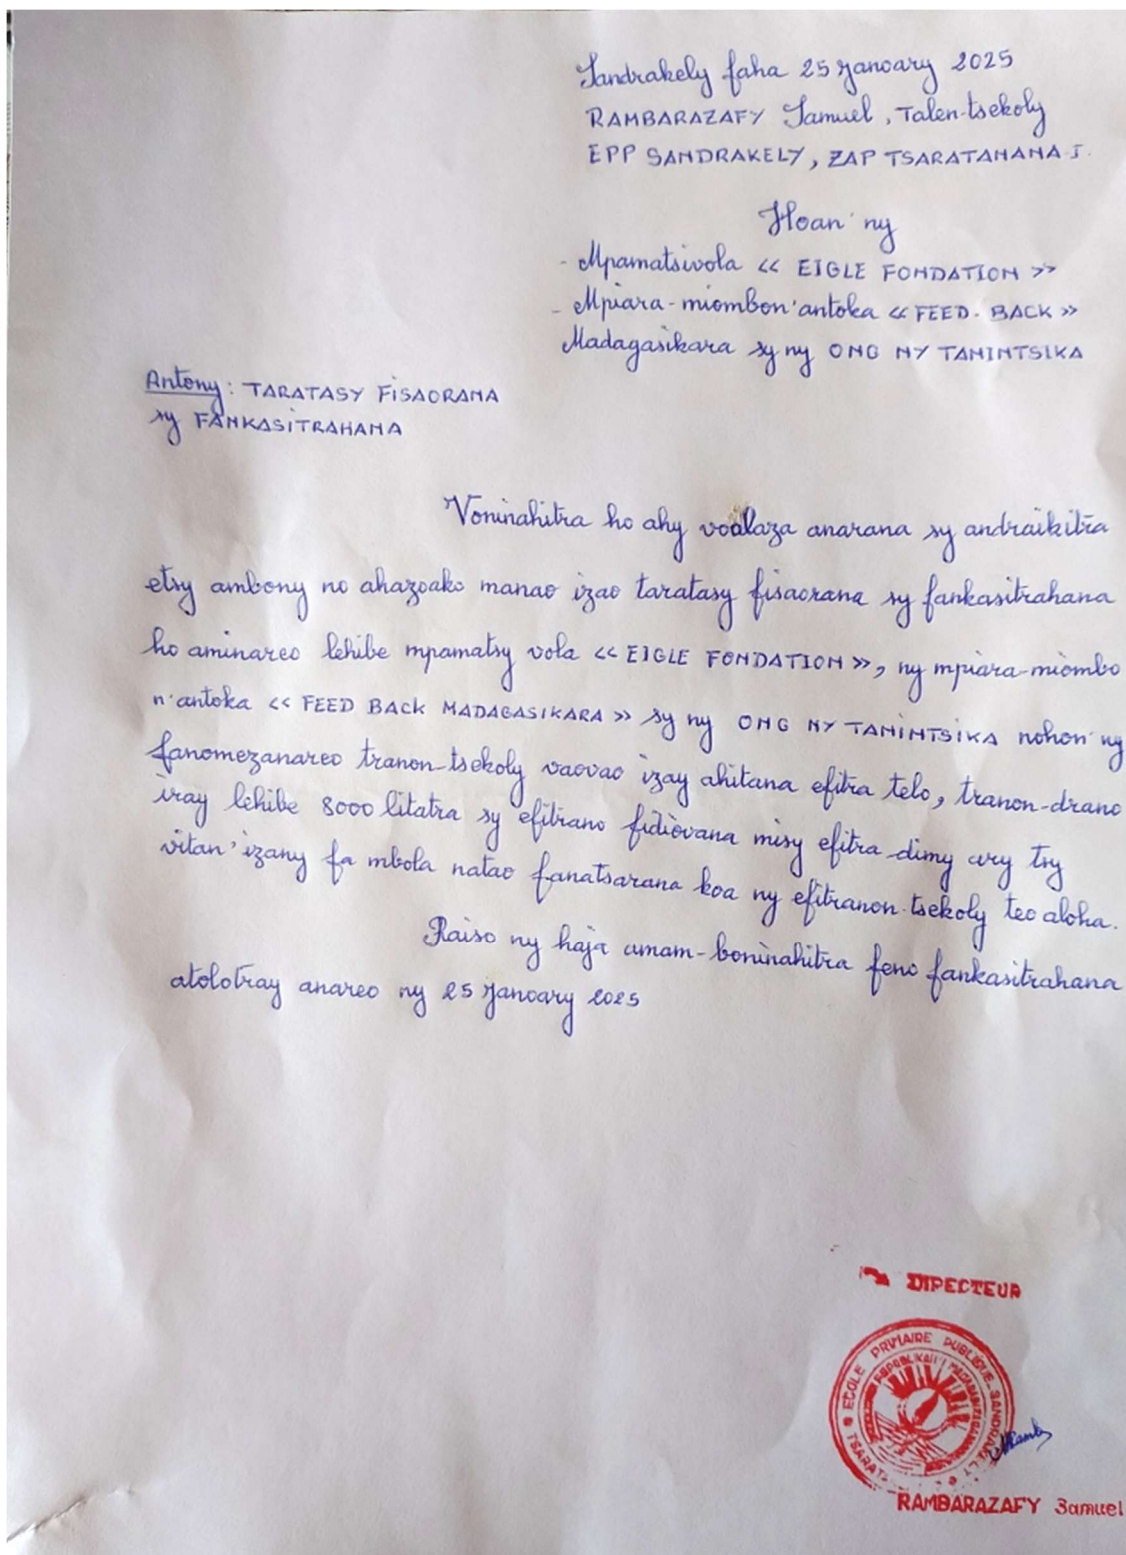 Sandrakely faha 25 Janoary 2025
RAMBARAZAFY Samuel, Talen-tsekoly
EPP SANDRAKELY, ZAP TSARATANANA I.
Hoan' ny
- Mpamatsivola « EIGLE FONDATION »
- Mpiara-miombon'antoka « FEED-BACK »
Madagasikara sy ny ONG NY TANINTSIKA
Antony: TARATASY FISAORANA
sy FANKASITRAHANA
Voninahitra ho ahy voalaza anarana sy andraikitra
etsy ambony no ahazoako manao izao taratasy fisaorana sy fankasitrahana
ho aminareo lehibe mpamatsy vola « EIGLE FONDATION », ny mpiara-miombo
n'antoka « FEED BACK MADAGASIKARA » sy ny ONG NY TANINTSIKA nohon'ny
fanomezanareo tranon-tsekoly vaovao izay ahitana efitra telo, tranon-drano
iray lehibe 8000 litatra sy efitrano fidiovana misy efitra dimy ary tsy
vitan'izany fa mbola natao fanatsarana koa ny efitranon-tsekoly teo aloha.
Raiso ny haja amam-boninahitra feno fankasitrahana
atolotray anareo ny 25 Janoary 2025
DIRECTEUR
ECOLE PRIMAIRE PUBLIQUE SANDRAKELY
RAMBARAZAFY Samuel